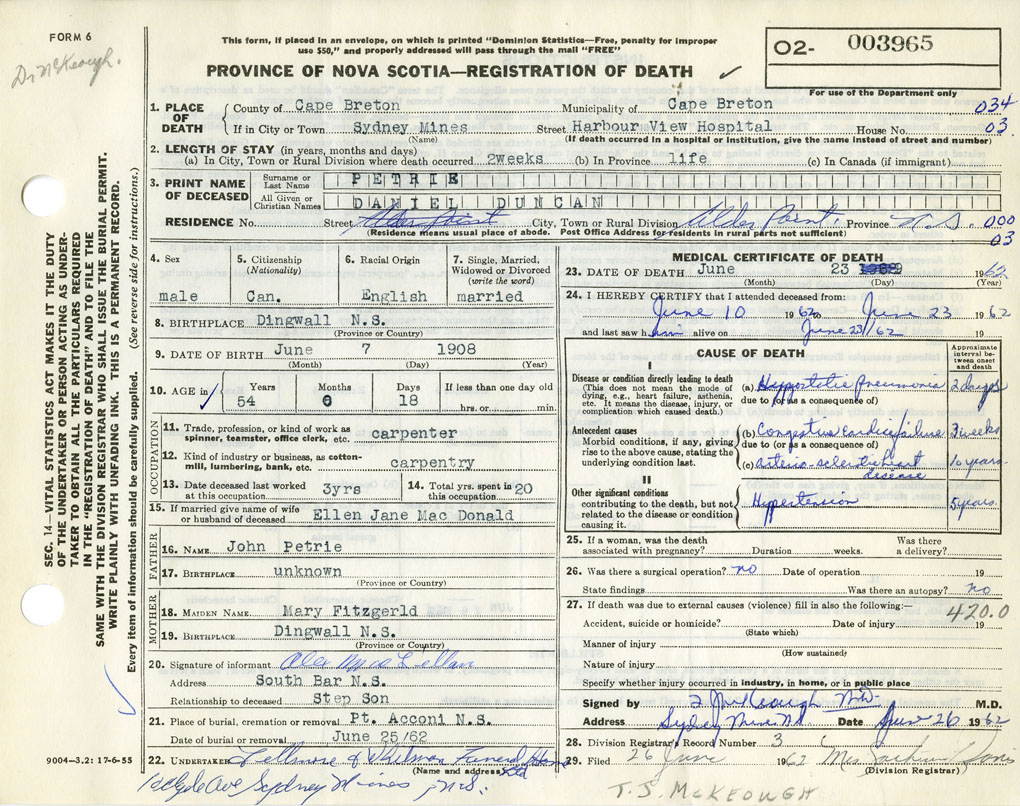 FORM 6
Dr. McKeough.
This form, if placed in an envelope, on which is printed "Dominion Statistics—Free, penalty for improper
use $50," and properly addressed will pass through the mail "FREE"
PROVINCE OF NOVA SCOTIA—REGISTRATION OF DEATH ✓
02- 003965
For use of the Department only
034
03.
1. PLACE OF DEATH
County of Cape Breton Municipality of Cape Breton
If in City or Town Sydney Mines Street Harbour View Hospital House No.
(Name) (If death occurred in a hospital or institution, give the name instead of street and number)
2. LENGTH OF STAY (in years, months and days)
(a) In City, Town or Rural Division where death occurred 2weeks (b) In Province life (c) In Canada (if immigrant)
3. PRINT NAME OF DECEASED
Surname or Last Name PETRIE
All Given or Christian Names DANIEL DUNCAN
RESIDENCE No. Street Alder Point City, Town or Rural Division Alder Point Province N S 000
03
(Residence means usual place of abode. Post Office Address for residents in rural parts not sufficient)
4. Sex
male
5. Citizenship
(Nationality)
Can.
6. Racial Origin
English
7. Single, Married,
Widowed or Divorced
(write the word)
married
8. BIRTHPLACE Dingwall N.S.
(Province or Country)
9. DATE OF BIRTH June 7 1908
(Month) (Day) (Year)
10. AGE in ✓ Years Months Days If less than one day old
54 0 18 hrs. or min.
OCCUPATION
11. Trade, profession, or kind of work as
spinner, teamster, office clerk, etc. carpenter
12. Kind of industry or business, as cotton-
mill, lumbering, bank, etc. carpentry
13. Date deceased last worked
at this occupation 3yrs
14. Total yrs. spent in
this occupation 20
15. If married give name of wife
or husband of deceased Ellen Jane Mac Donald
FATHER
16. NAME John Petrie
17. BIRTHPLACE unknown
(Province or Country)
MOTHER
18. MAIDEN NAME Mary Fitzgerld
19. BIRTHPLACE Dingwall N.S.
(Province or Country)
20. Signature of informant Alex MacLellan
Address South Bar N.S.
Relationship to deceased Step Son
21. Place of burial, cremation or removal Pt. Acconi N.S.
Date of burial or removal June 25/62
22. UNDERTAKER Fellmore & Whitman Funeral Home Ltd
(Name and address)
Clyde Ave Sydney Mines, N.S.
MEDICAL CERTIFICATE OF DEATH
23. DATE OF DEATH June 23 1962
(Month) (Day) (Year)
24. I HEREBY CERTIFY that I attended deceased from:
June 10 1962 to June 23 1962
and last saw him alive on June 23/62 19
CAUSE OF DEATH
Approximate
interval be-
tween onset
and death
I
Disease or condition directly leading to death
(This does not mean the mode of
dying, e.g., heart failure, asthenia,
etc. It means the disease, injury, or
complication which caused death.)
(a) Hypostatic Pneumonia 2 days
due to (or as a consequence of)
Antecedent causes
Morbid conditions, if any, giving
rise to the above cause, stating the
underlying condition last.
(b) Congestive Cardiac failure 3 weeks
due to (or as a consequence of)
(c) arterio-sclerotic heart disease 10 years
II
Other significant conditions
contributing to the death, but not
related to the disease or condition
causing it.
Hypertension 5 years
25. If a woman, was the death Was there
associated with pregnancy? Duration weeks. a delivery?
26. Was there a surgical operation? no Date of operation 19
State findings Was there an autopsy? no
27. If death was due to external causes (violence) fill in also the following:— 420.0
Accident, suicide or homicide? Date of injury 19
(State which)
Manner of injury
(How sustained)
Nature of injury
Specify whether injury occurred in industry, in home, or in public place
Signed by J McKeough M.D. M.D.
Address Sydney Mines N.S Date June 26 1962
28. Division Registrar's Record Number 3
29. Filed 26 June 1962 Mrs
(Division Registrar)
T.J. McKEOUGH
SEC. 14—VITAL STATISTICS ACT MAKES IT THE DUTY
OF THE UNDERTAKER OR PERSON ACTING AS UNDER-
TAKER TO OBTAIN ALL THE PARTICULARS REQUIRED
IN THE "REGISTRATION OF DEATH" AND TO FILE THE
SAME WITH THE DIVISION REGISTRAR WHO SHALL ISSUE THE BURIAL PERMIT.
WRITE PLAINLY WITH UNFADING INK. THIS IS A PERMANENT RECORD.
Every item of information should be carefully supplied. (See reverse side for instructions.)
9004—3.2: 17-6-55